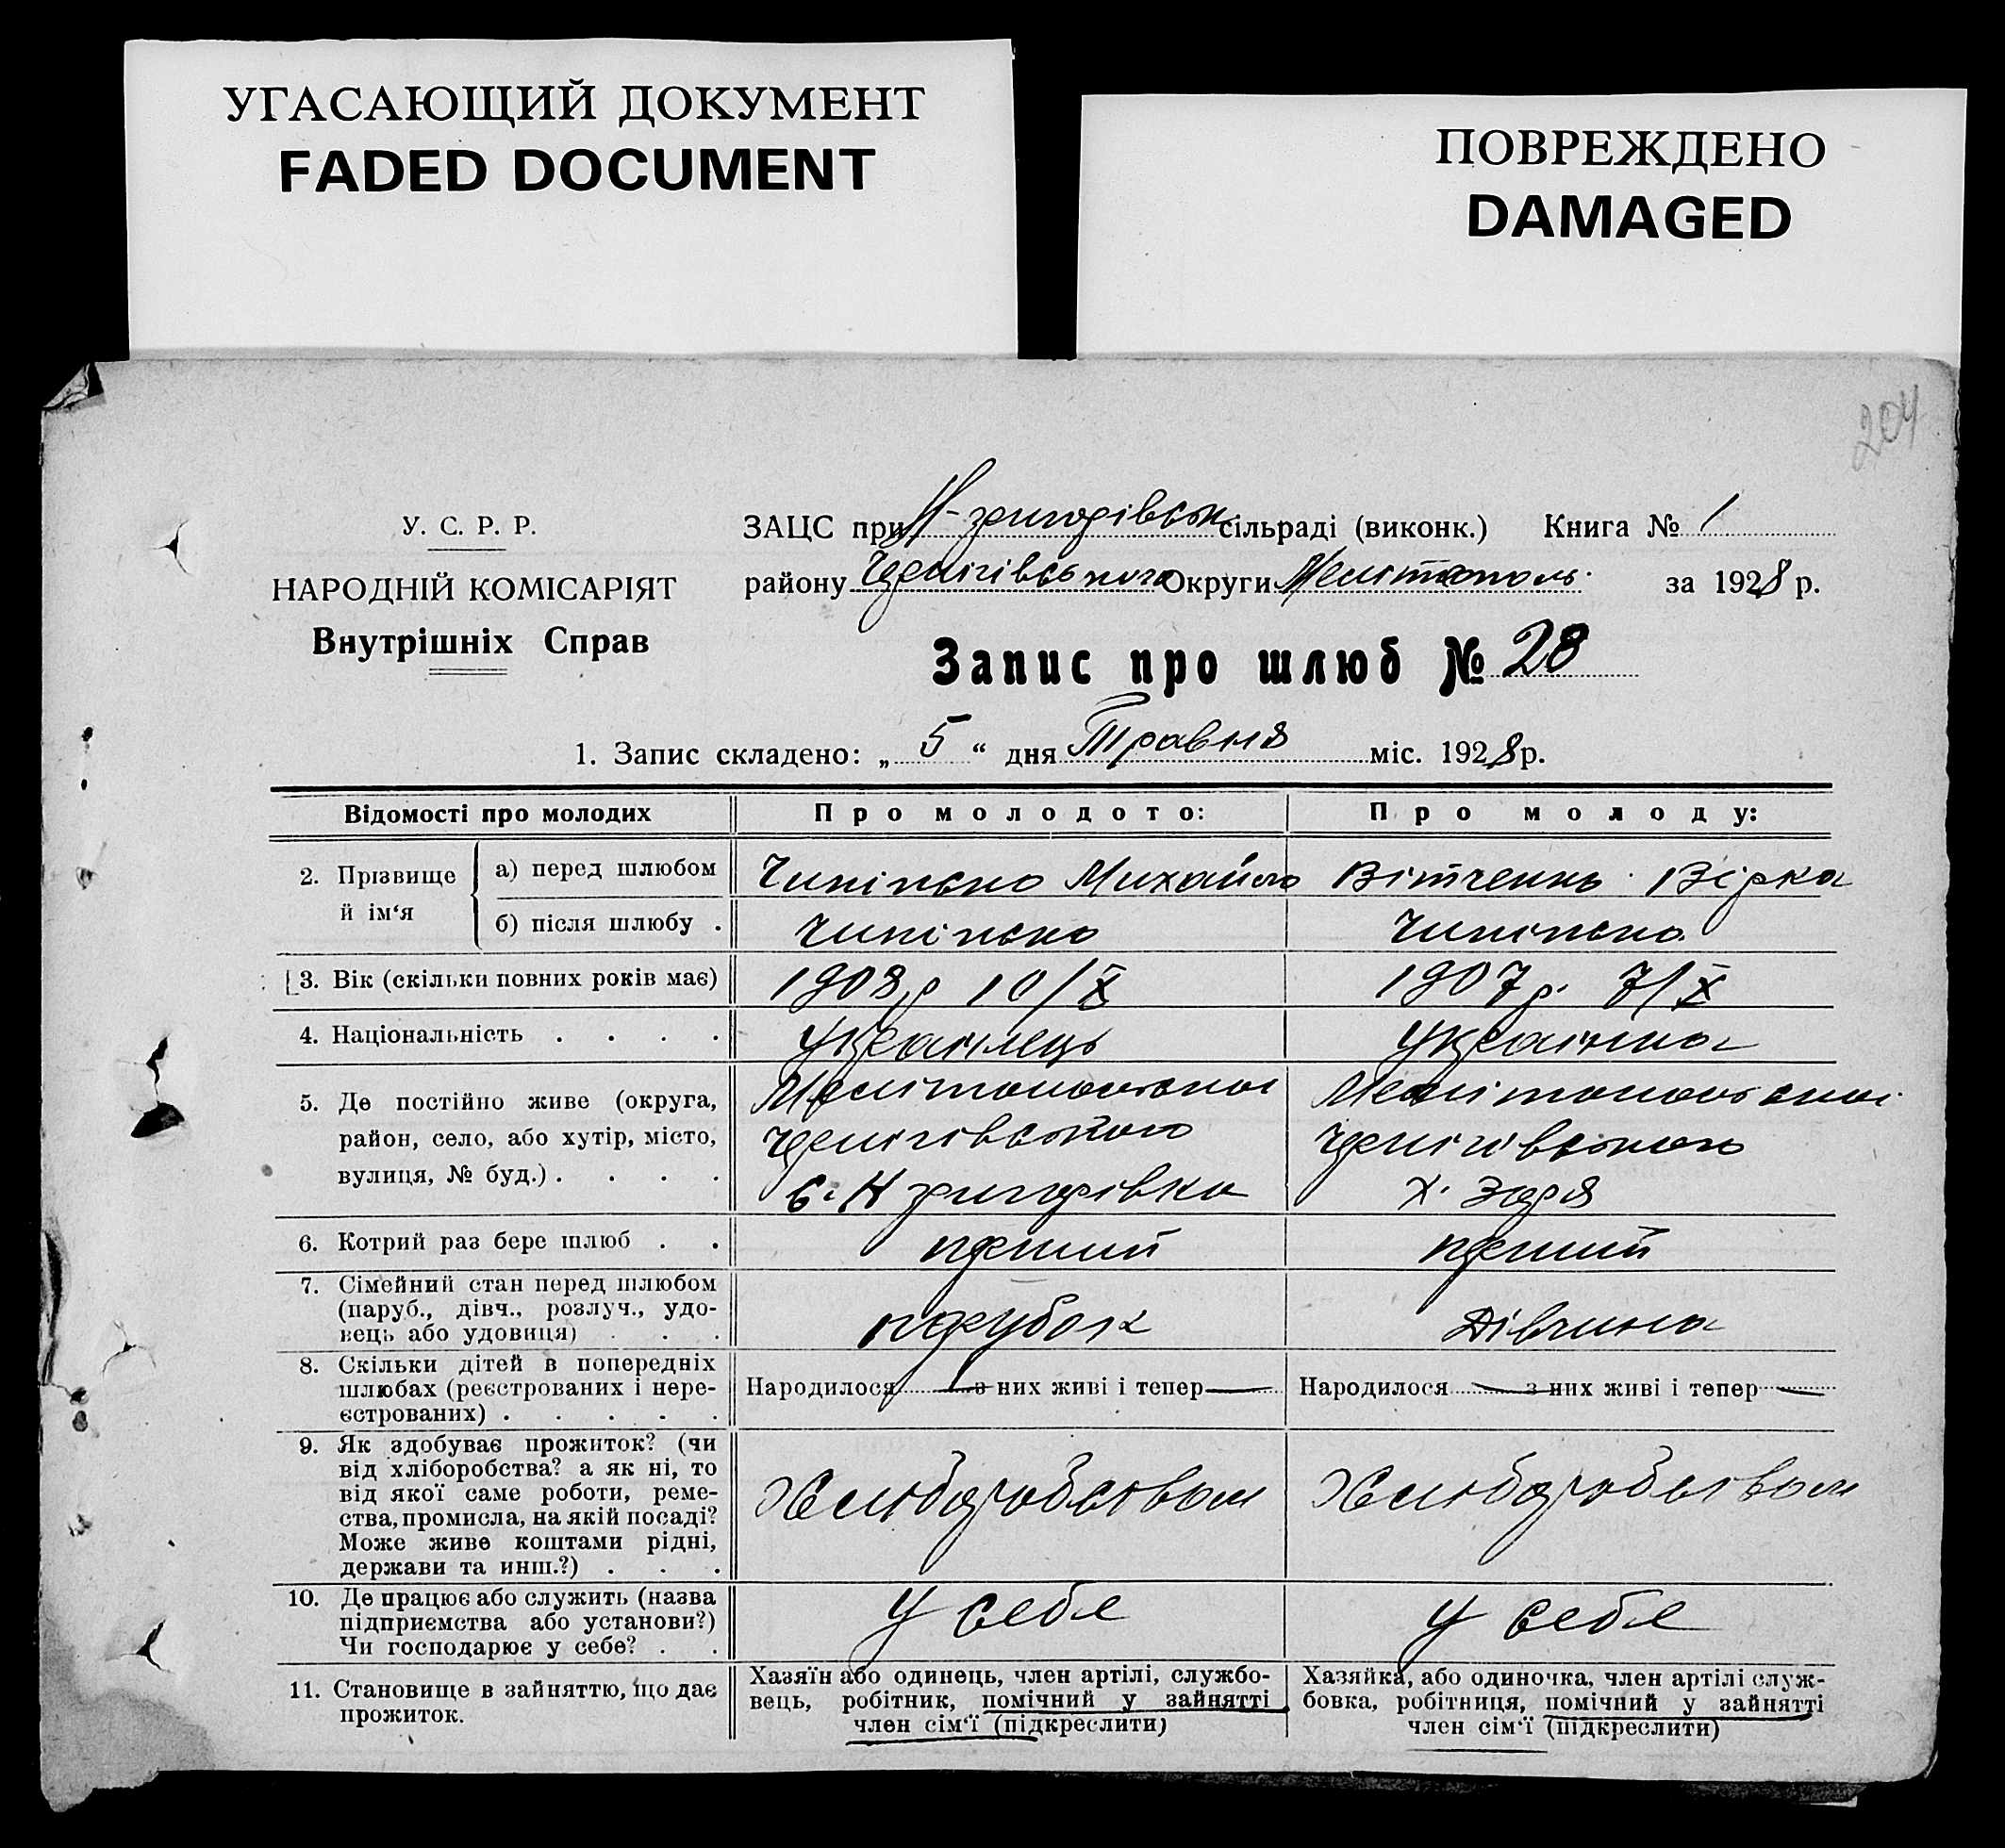 УГАСАЮЩИЙ ДОКУМЕНТ
FADED DOCUMENT
ПОВРЕЖДЕНО
DAMAGED
204
У. С. Р. Р.
НАРОДНІЙ КОМІСАРІЯТ
Внутрішніх Справ
ЗАЦС при Н-григорівськ. сільраді (виконк.) Книга № 1
району Чернігівського Округи Мелітополь. за 1928 р.
Запис про шлюб № 28
1. Запис складено: „ 5 “ дня Травня міс. 1928 р.
Відомості про молодих
Про молодого:
Про молоду:
2. Прізвище й ім‘я
а) перед шлюбом
Чипіпско Михайло
Вітченнь Вірка
б) після шлюбу .
Чипіпско
Чипіпско
3. Вік (скільки повних років має)
1908 р 10/X
1907 р. 7/X
4. Національність . . . .
Українець
Українка
5. Де постійно живе (округа,
район, село, або хутір, місто,
вулиця, № буд.) . . . .
Мелітопольскої
Чернігівського
с. Н григорівка
Мелітопольскої
Чернігівського
х. Зоря
6. Котрий раз бере шлюб . .
перший
перший
7. Сімейний стан перед шлюбом
(паруб., дівч., розлуч., удо-
вець або удовиця) . . .
парубок
Дівчина
8. Скільки дітей в попередніх
шлюбах (реєстрованих і нере-
єстрованих) . . . . .
Народилося — з них живі і тепер —
Народилося — з них живі і тепер —
9. Як здобуває прожиток? (чи
від хліборобства? а як ні, то
від якої саме роботи, реме-
ства, промисла, на якій посаді?
Може живе коштами рідні,
держави та инш.?) . . .
Хлиборобством
Хлиборобством
10. Де працює або служить (назва
підприємства або установи?)
Чи господарює у себе? . .
У себе
У себе
11. Становище в зайняттю, що дає
прожиток.
Хазяїн або одинець, член артілі, службо-
вець, робітник, помічний у зайнятті
член сім‘ї (підкреслити)
Хазяйка, або одиночка, член артілі служ-
бовка, робітниця, помічний у зайнятті
член сім‘ї (підкреслити)